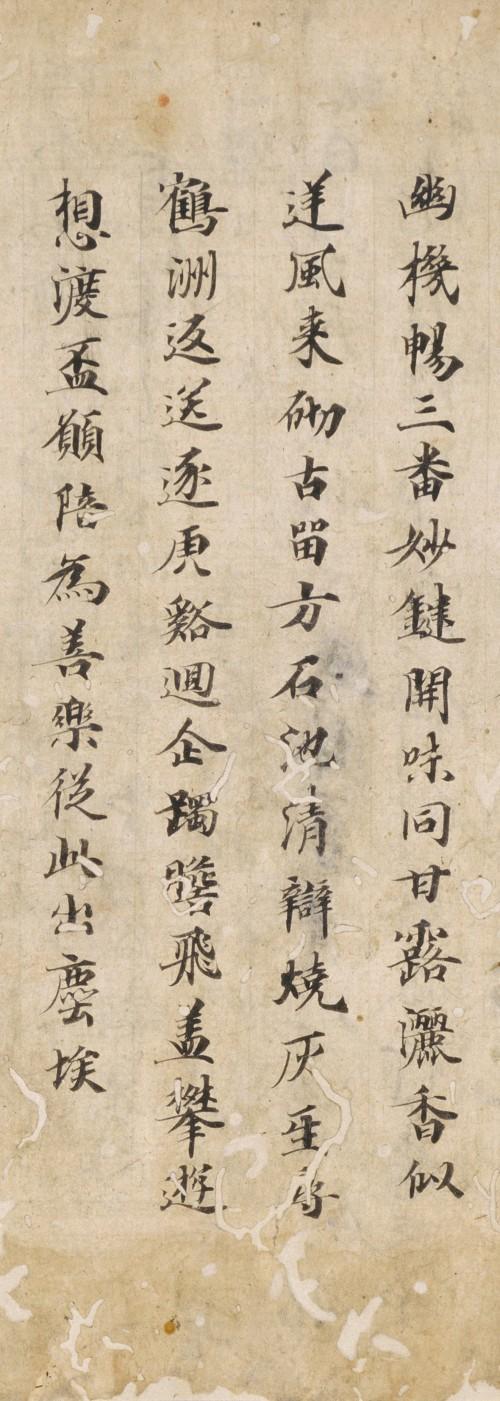 幽機暢三番妙鍵開味同甘露灑香似
逆風来砌古留方石池清辯燒灰
鶴洲返送逐虎谿迴企躅瞻飛盖攀遊
想渡盃願陪為善樂從此出塵埃